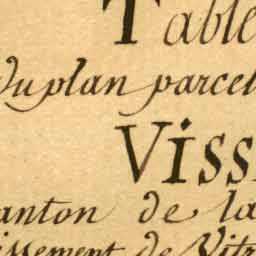 Table
Du plan parcel
Viss
anton de la
issement de Vitr